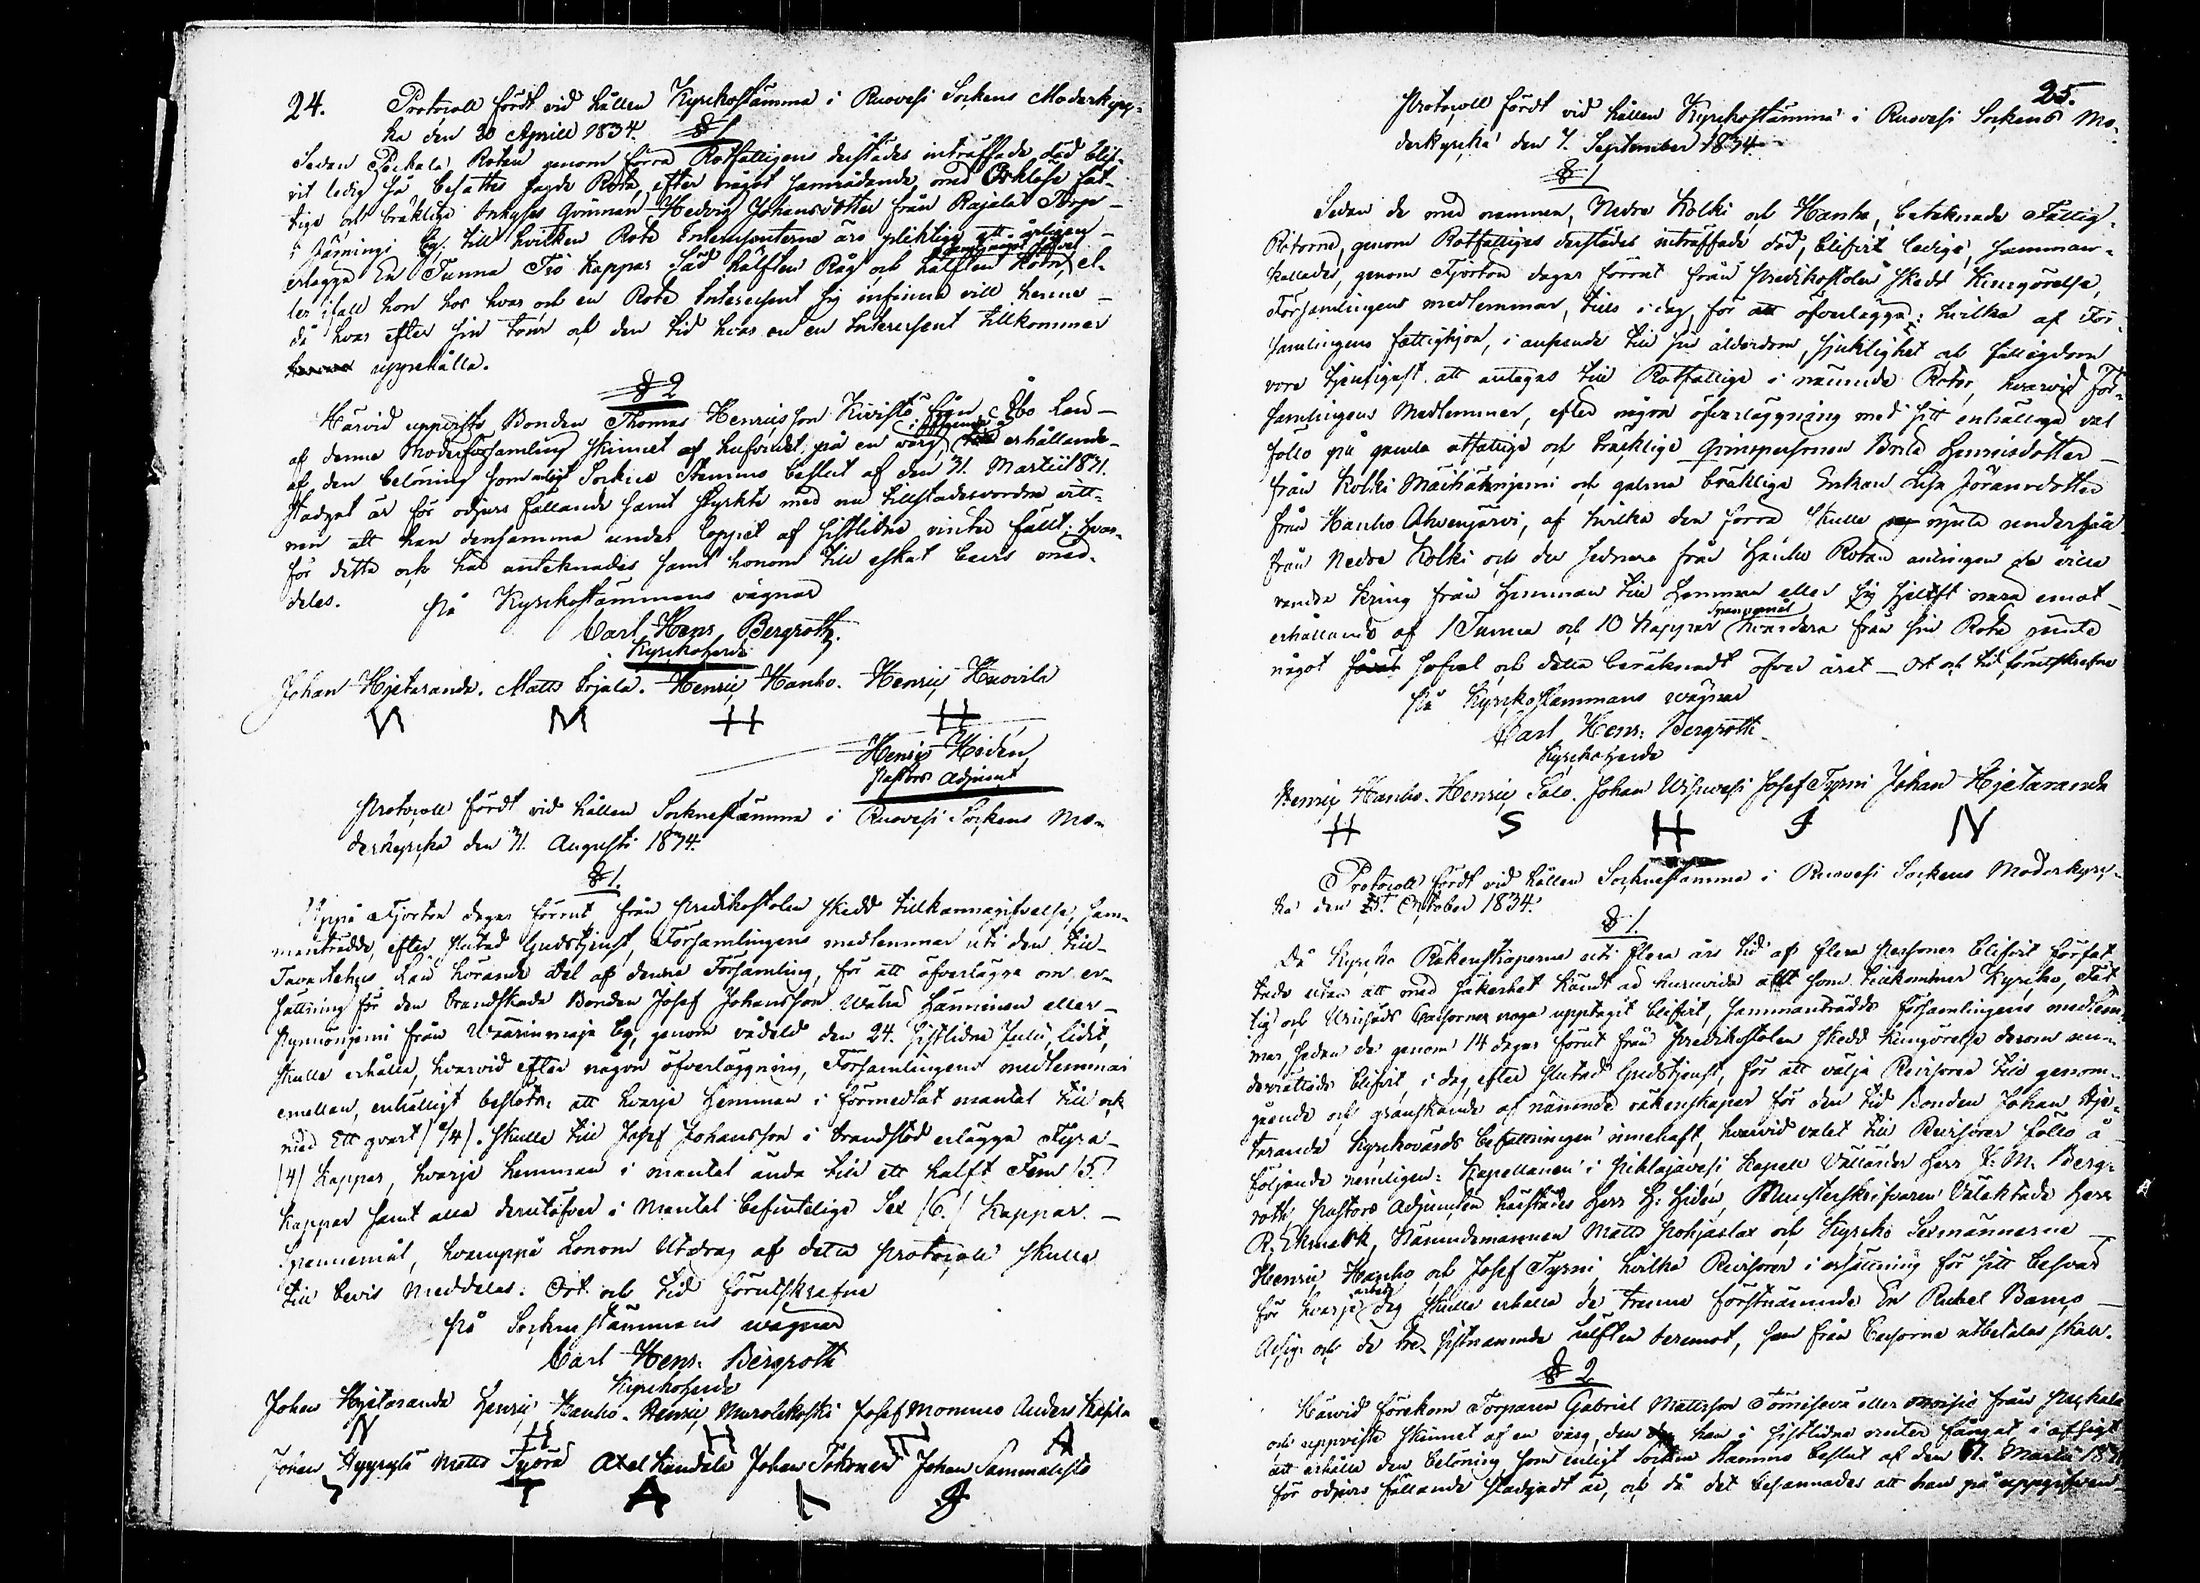 24. Protocoll fördt vid hållen Kyrkostämma i Ruovesi Sockens Moderkyr-
ka den 20 Aprill 1834.
§ 1
Sedan Pockala Rotan genom förra Rotfattigens derstädes inträffade död blif-
vit ledig så besattes sagde Rota, efter något samrådande, med Orklösa fat-
tige och bräkliga Qvinnan Hedvig Johansdotter från Rajala Torp
i Jämingi By, till hvilken Rota Interessenterne äro pliktige att årligen
erlägga En Tunna Tio Kappar Säd hälften Råg och hälften Korn, el-
ler ifall hon hos hvar och en Rote Interessent sig infinna vill henne
då hvar efter sin tour och den tid hvar och en Interessent tillkommer
uppehålla.
§ 2
Härvid uppviste Bonden Thomas Henricsson Kivistö från Åbo Län
af denna Moderförsamling skinnet af hufvudet på en varg, erhållande
af den belöning som enligt Sockne Stämmo beslut af den 31 Martii 1831.
stadgat är för odjurs fällande samt styrkte med nu tillstädesvordne vitt-
nen att han densamma under loppet af sistlidne vinter fällt; hvar-
före detta och här antecknades samt honom till eskat bevis med-
deles. På Kyrkostämmans vägnar
Carl Henr. Bergroth.
Kyrkoherde
Johan Hjetaranda. Matts Erjala. Henric Hanho. Henric Haovila
N M H H
Henric Hedén
Pastors Adjunct
Protocoll fördt vid hållen Socknestämma i Ruovesi Sockens Mo-
derkyrka den 31. Augusti 1834.
§ 1.
Uppå Fjorton dagar förrut från Predikostolen skedd tillkännagifvelse, sam-
manträdde, efter slutad Gudstjenst, Församlingens medlemmar uti den till
Tavastehus Län hörande del af denna Församling, för att öfverlägga om er-
sättning för den brandskada Bonden Josef Johansson Wäha Hänninen eller
från Wäärinmaja By, genom vådeld den 24. sistlidne Julii, lidit,
skulle erhålla, hvarvid efter någon öfverläggning, Församlingens medlemmar
emellan, enhälligt beslöts: att hvarje Hemman i förmedlat mantal till och
med Ett qvart (1/4). skulle till Josef Johansson i brandstod erlägga Fyra
(4) Kappar, hvarje hemman i mantal ända till ett halft Fem (5.)
Kappar samt alla derutöfver i Mantal befintelige Sex (6.) Kappar
Spannemål, hvaruppå honom Utdrag af detta Protocoll skulle
till bevis meddelas. Ort och tid förutskrefne
På Sockenstämmans wägnar
Carl Henr. Bergroth
Kyrkoherde
Johan Hjetaranda Henric Hanho. Henric Murolekoski Josef Mommo Anders
N H H A
Johan Hyyrylä Matts Työrä Axel Kandela Johan Tokonen Johan Sammalisto
T A J
25.
Protocoll fördt vid hållen Kyrkostämma i Ruovesi Sockens Mo-
derkyrka den 7. September 1834.
§ 1
Sedan de med namnen, Nedre Kolki och Hanho, betecknade Fattig-
Rotorne, genom Rotfattiges derstädes inträffade död, blifvit ledige, samman-
kallades, genom Fjorton dagar förrut från Predikostolen skedt Kungörelse,
Församlingens medlemmar, tills i dag, för att öfverlägga: hvilka af För-
samlingens fattighjon, i anseende till sin ålderdom, sjuklighet och fattigdom
vore tjenligast att antagas till Rotfattige i nämnde Rotor, hvarvid För-
samlingens Medlemmar, efter någon öfverläggning med sitt enhälliga val
föllo på gamla utfattige och bräcklige Qvinspersonen Brita Henricsdotter
från Kolki Mäihäkniemi och gamla bräkliga Enkan Lisa Jöransdotter
från Hanho Ahvenjärvi, af hvilka den förra skulle njuta understöd
från Nedre Kolki och den sednare från Hanho Rotan antingen de ville
vandra kring från Hemman till Hemman eller sig sjelfft nära emot
erhållande af 1 Tunna och 10 Kappar Spannemål hvardera från sin Rota jemte
något sofvel och detta beräknadt öfver året — Ort och tid förutskrefne
På Kyrkostämmans wägnar
Carl Henr: Bergroth
Kyrkoherde
Henric Hanho. Henric Salo. Johan Wisuvesi Josef Tyrni Johan Hjetaranda
H S H J N
Protocoll fördt vid hållen Socknestämma i Ruovesi Sockens Moderkyr-
ka den Oktober 1834.
§ 1.
Då Kyrko Räkenskaperna uti flera års tid af flera Personer blifvit förfat-
tade utan att med säkerhet kändt är huruvida allt som tillkommer Kyrko, Fat-
tig och Cassorna noga upptagit blifvit, sammanträdde församlingens medlem-
mar, sedan de genom 14 dagar förut från Predikostolen skedd kungörelse derom un-
derrättade blifvit, i dag, efter slutad Gudstjenst, för att välja Revisorer till genom-
gående och granskande af nämnde räkenskaper för den tid Bonden Johan Hje-
taranda Kyrkovärds befattningen innehaft, hvarvid valet till Revisorer föllo å
följande nemligen: Kapellanen i Pihlajavesi Kapell Vällärder Herr K: M. Berg-
roth, Pastors Adjuncten härstädes Herr H: Hedén, Munsterskrifvaren Välaktade Herr
R. Ekmark, Nämndemannen Matts Pohjaslax och Kyrko Sexmännerne
Henric Hanho och Josef Tyrni, hvilka Revisorer i ersättning för sitt besvär
för hvarje arbets dag skulle erhålla de trenne förstnämnde En Rubel Banco
Assig: och de tre sistnämnde hälften deremot, som från Cassorna utbetalas skall.
§ 2
Härvid förekom Torparen Gabriel Mattsson Tömisevä eller från
och uppviste skinnet af en varg, den han i sistlidne vinter fångat i afsigt
att erhålla den belöning som enligt Socken Stämmo beslut af den 31. Martii 1831
för odjurs fällande stadgadt är, och då det besannades att han på uppgifven